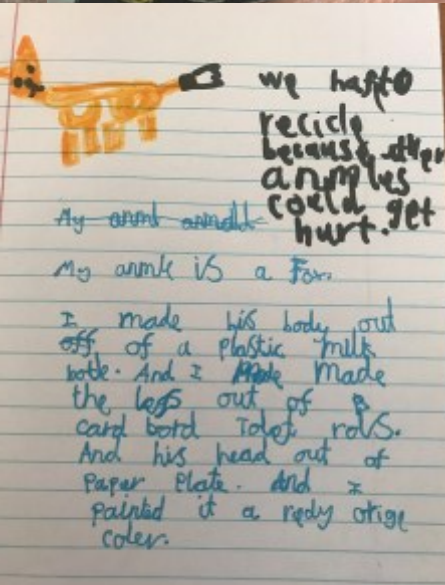 we hafto
recicle
because other
anmles
could get
hurt.
My anml anmall
My anmle is a Fox.
I made his body out
off of a plastic milk
botle. And I made
the legs out of
card bord Tolet rolS.
And his head out of
Paper Plate. And I
Painted it a redy orige
coler.